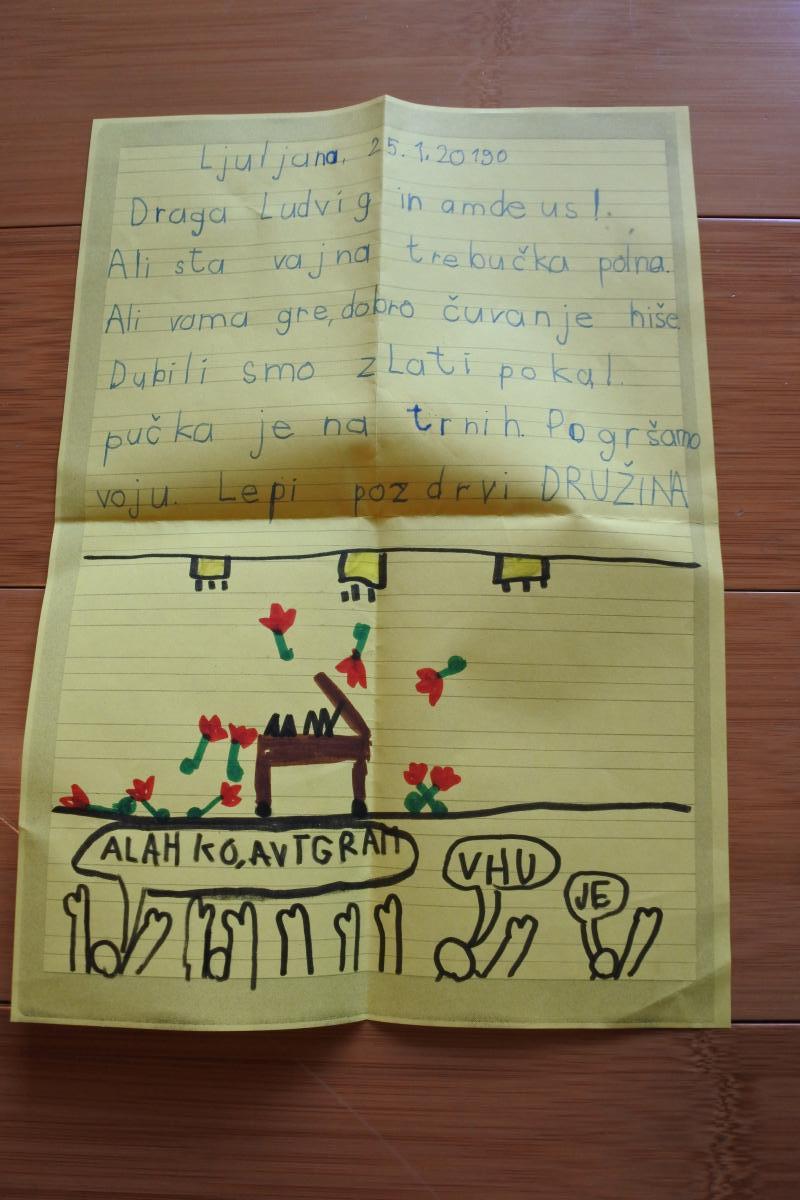 Ljuljana, 25.1.20190
Draga Ludvig in amdeus!.
Ali sta vajna trebučka polna.
Ali vama gre, dobro čuvanje hiše
Dubili smo zLati pokal.
pučka je na trnih. Pogršamo
voju. Lepi pozdrvi DRUŽINA
ALAH KO, AVTGRAM
VHU
JE